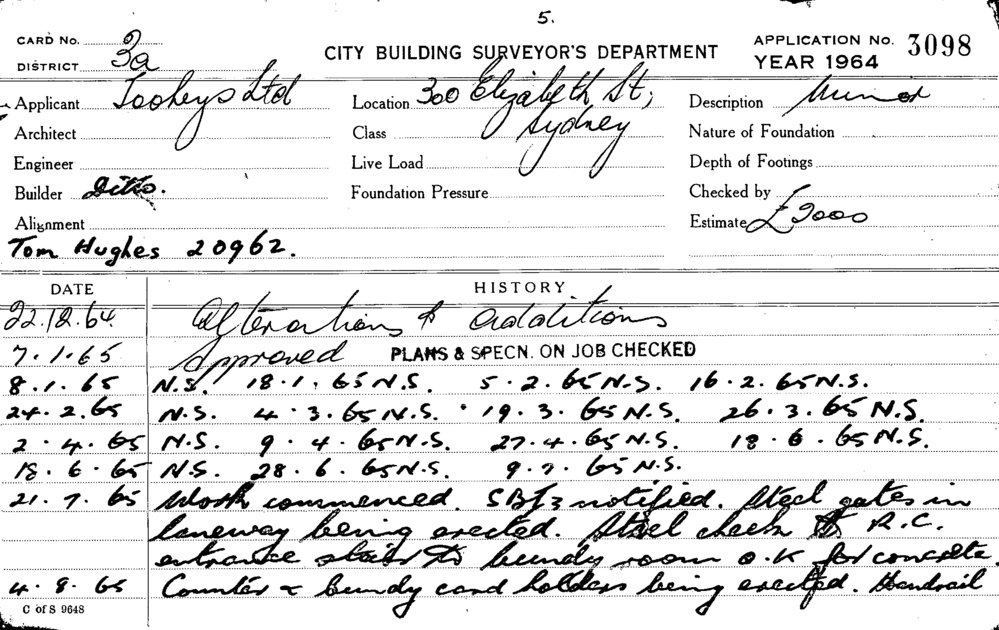 5.
CARD No.
DISTRICT 3a
CITY BUILDING SURVEYOR'S DEPARTMENT
APPLICATION No. 3098
YEAR 1964
Applicant Tooheys Ltd
Location 300 Elizabeth St,
Sydney
Description Minor
Architect
Class
Nature of Foundation
Engineer
Live Load
Depth of Footings
Builder Ditto.
Foundation Pressure
Checked by
Alignment
Estimate £2000
Tom Hughes 20962.
DATE HISTORY
22.12.64 Alterations & additions
7.1.65 Approved PLANS & SPECN. ON JOB CHECKED
8.1.65 N.S. 18.1.65 N.S. 5.2.65 N.S. 16.2.65 N.S.
24.2.65 N.S. 4.3.65 N.S. 19.3.65 N.S. 26.3.65 N.S.
2.4.65 N.S. 9.4.65 N.S. 27.4.65 N.S. 18.6.65 N.S.
18.6.65 N.S. 28.6.65 N.S. 9.7.65 N.S.
21.7.65 Work commenced. notified. Steel gates in
laneway being erected. Steel check R.C.
entrance stair to bundy room O.K for concrete
4.8.65 Counter & bundy card holders being erected. Handrail
C of S 9648